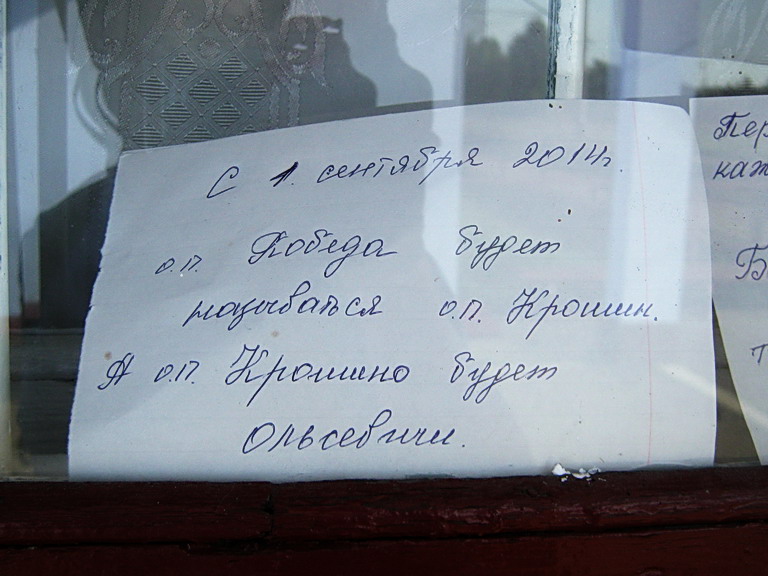 С 1. сентября 2014г.
о.п. Победа будет
называться о.п. Крошин.
А о.п. Крошино будет
Ольсевичи.
Пер
каж
Б
т